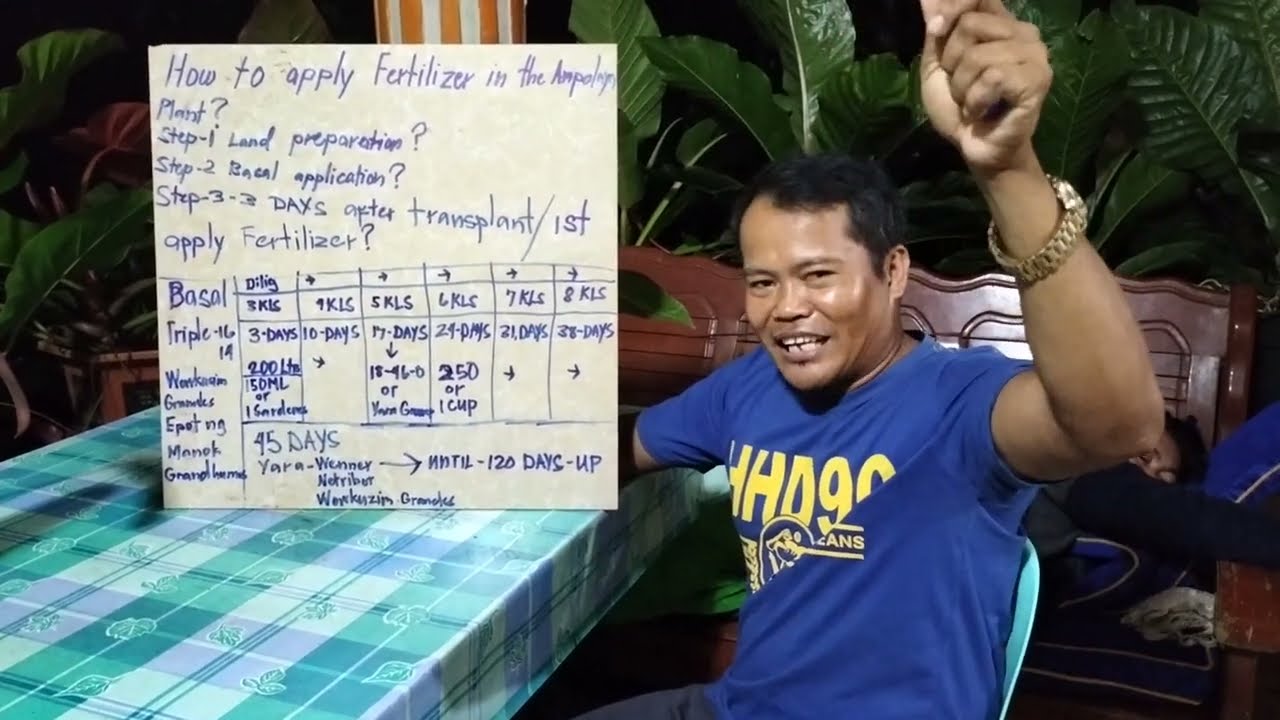 How to apply Fertilizer in the Ampalaya
Plant?
Step-1 Land preparation?
Step-2 Basal application?
Step-3-3 DAYS after transplant/1st
apply Fertilizer?
Basal Dilig → → → → →
3KLS 4KLS 5KLS 6KLS 7KLS 8KLS
Triple-16 3-DAYS 10-DAYS 17-DAYS 24-DAYS 31,DAYS 38-DAYS
14
200 Lts → ↓ 250 → →
Workuzim 150ML 18-46-0 or
Grandes or or 1 CUP
1 Sardenes Yara
Epot ng
Manok
45 DAYS
Yara-Wenner → UNTIL-120 DAYS-UP
Notribor
Workuzim Grandes
HHD90
EANS